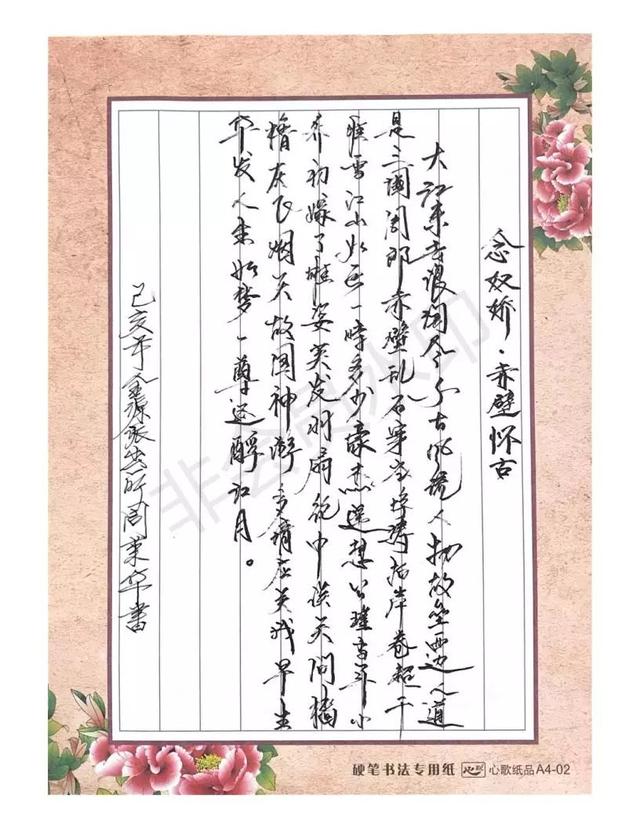 念奴娇·赤壁怀古
大江东去浪淘尽千古风流人物故垒西边人道
是三国周郎赤壁乱石穿空惊涛拍岸卷起千
堆雪江山如画一时多少豪杰遥想公瑾当年小
乔初嫁了雄姿英发羽扇纶巾谈笑间樯
橹灰飞烟灭故国神游多情应笑我早生
华发人生如梦一尊还酹江月。
己亥年金源派出所周荣华书
硬笔书法专用纸 心歌 心歌纸品A4-02
非会员水印